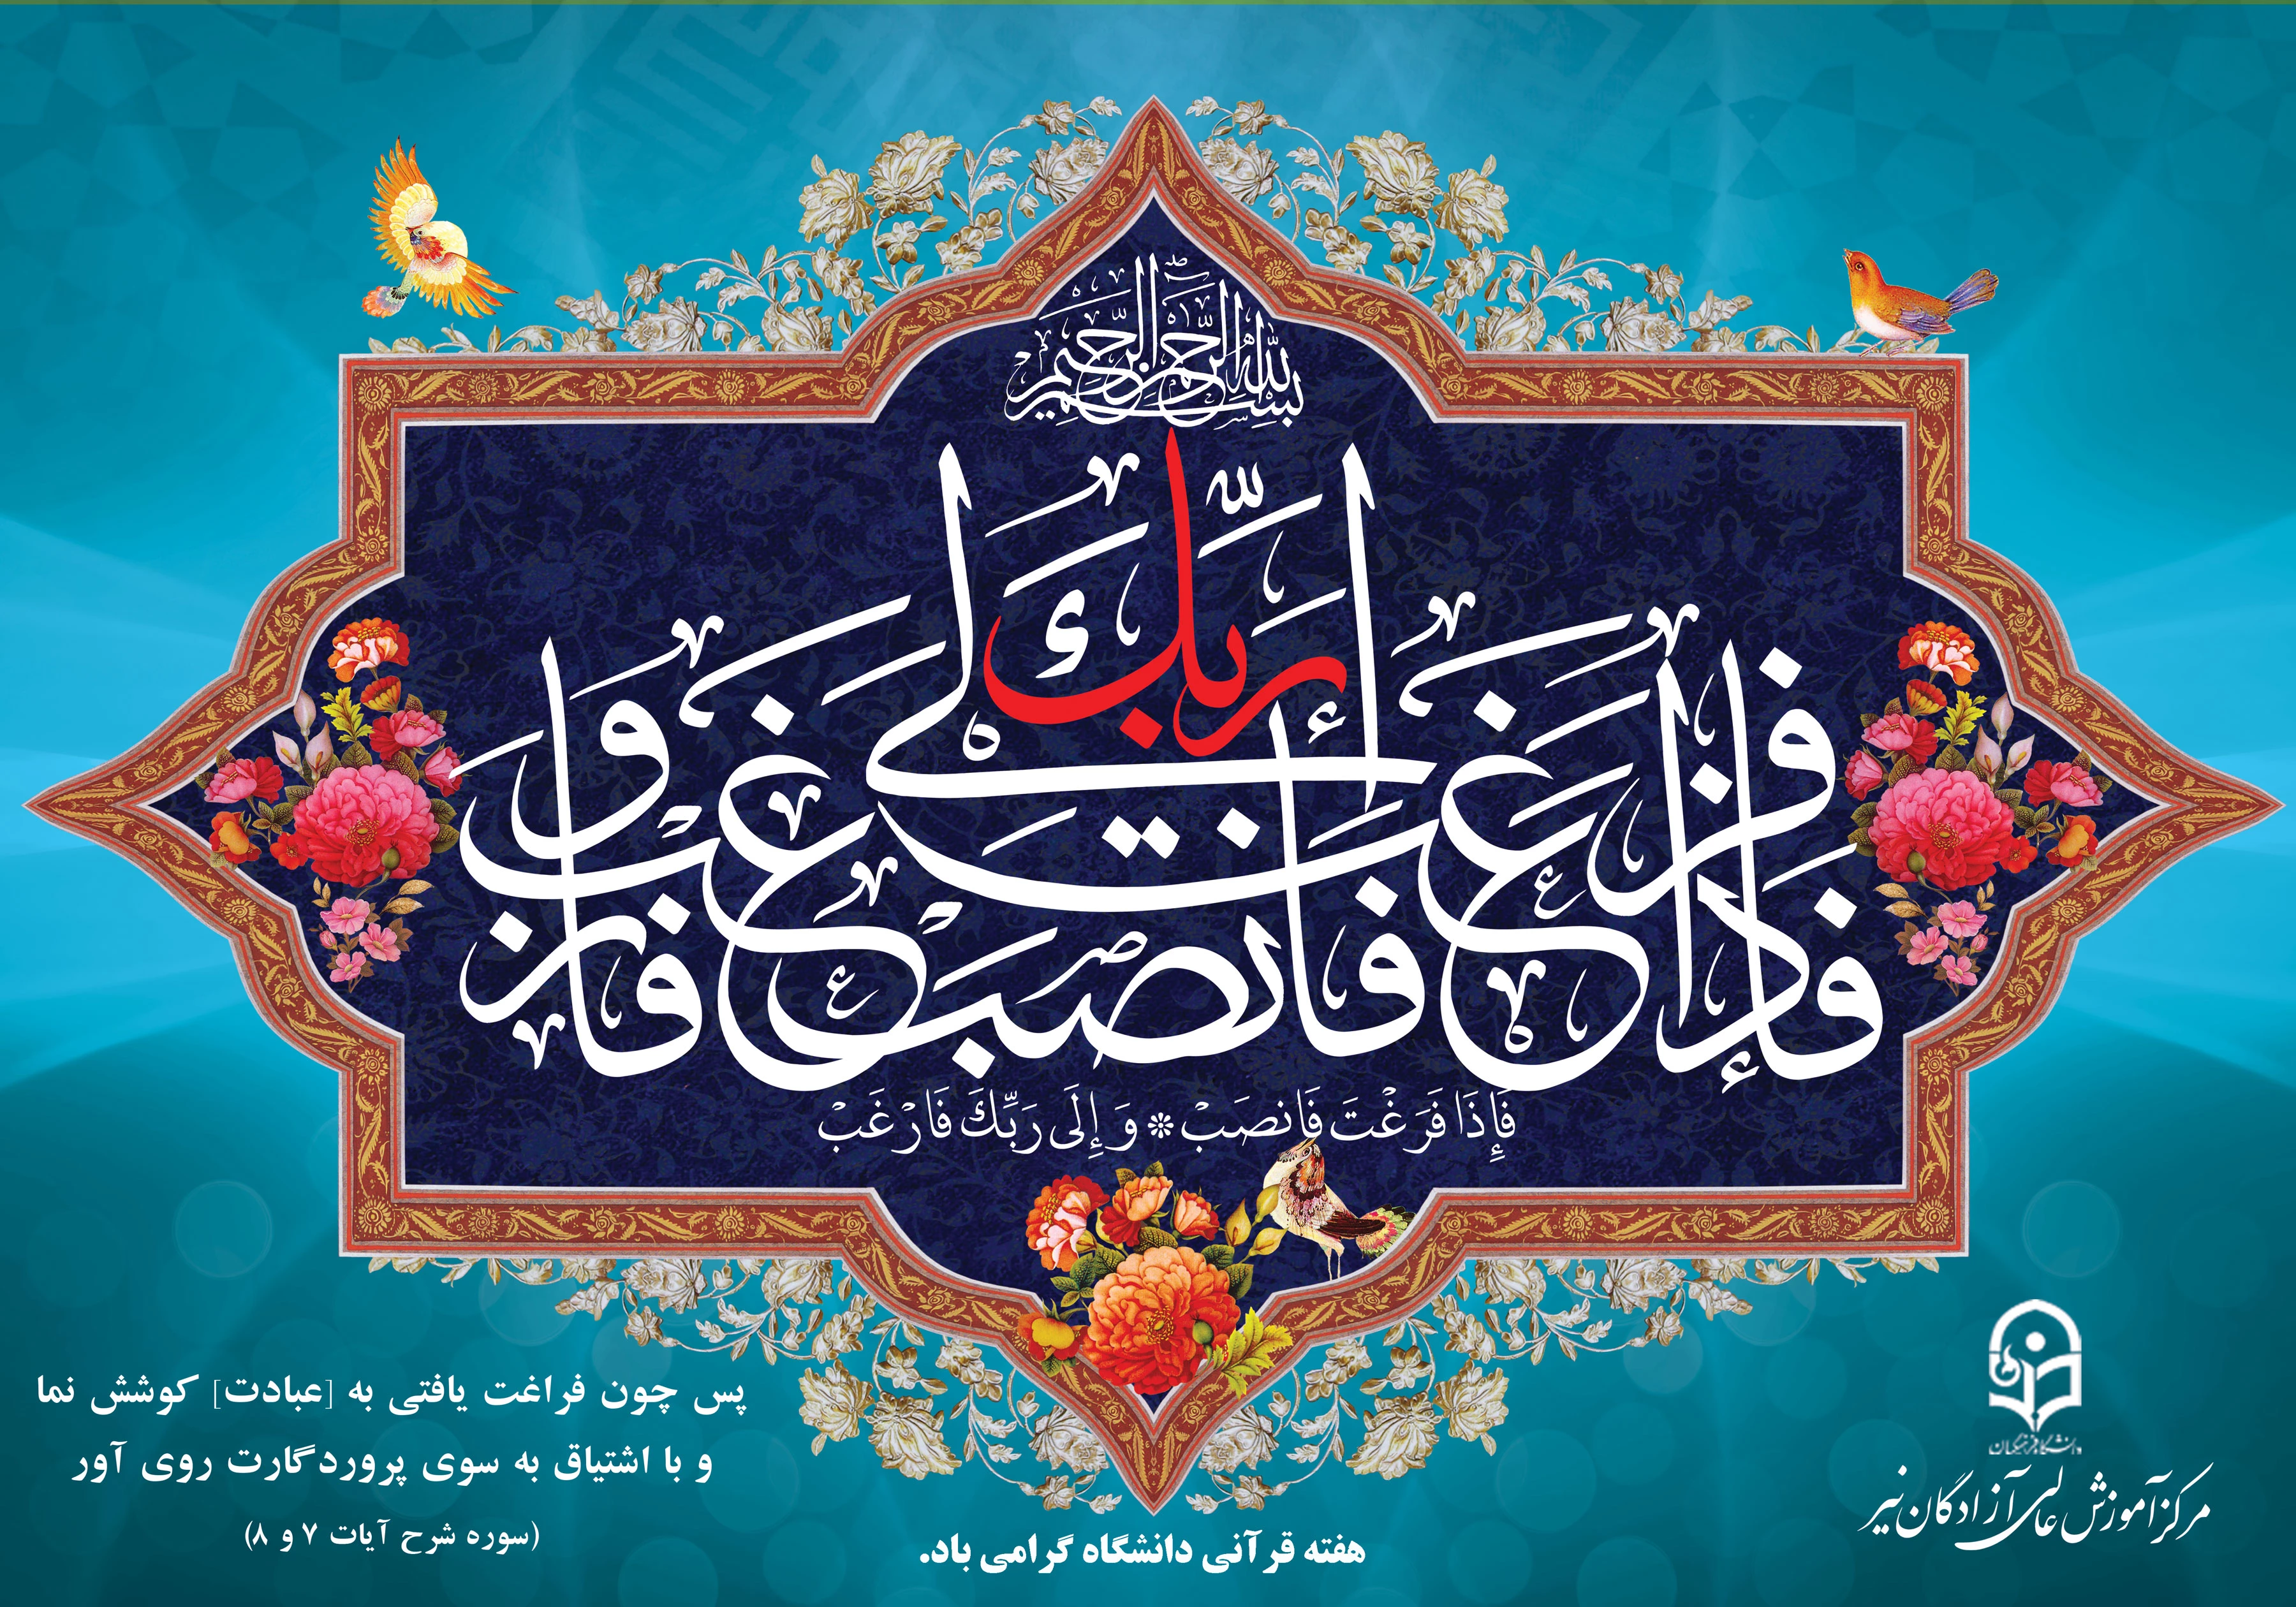 بسم الله الرحمن الرحیم
فإذا فرغت فانصب و إلی ربّك فارغب
فَإِذَا فَرَغْتَ فَانصَبْ * وَ إِلَى رَبِّكَ فَارْغَبْ
پس چون فراغت یافتی به [عبادت] کوشش نما
و با اشتیاق به سوی پروردگارت روی آور
(سوره شرح آیات ۷ و ۸)
هفته قرآنی دانشگاه گرامی باد.
دانشگاه فرهنگیان
مرکز آموزش عالی آزادگان نیر